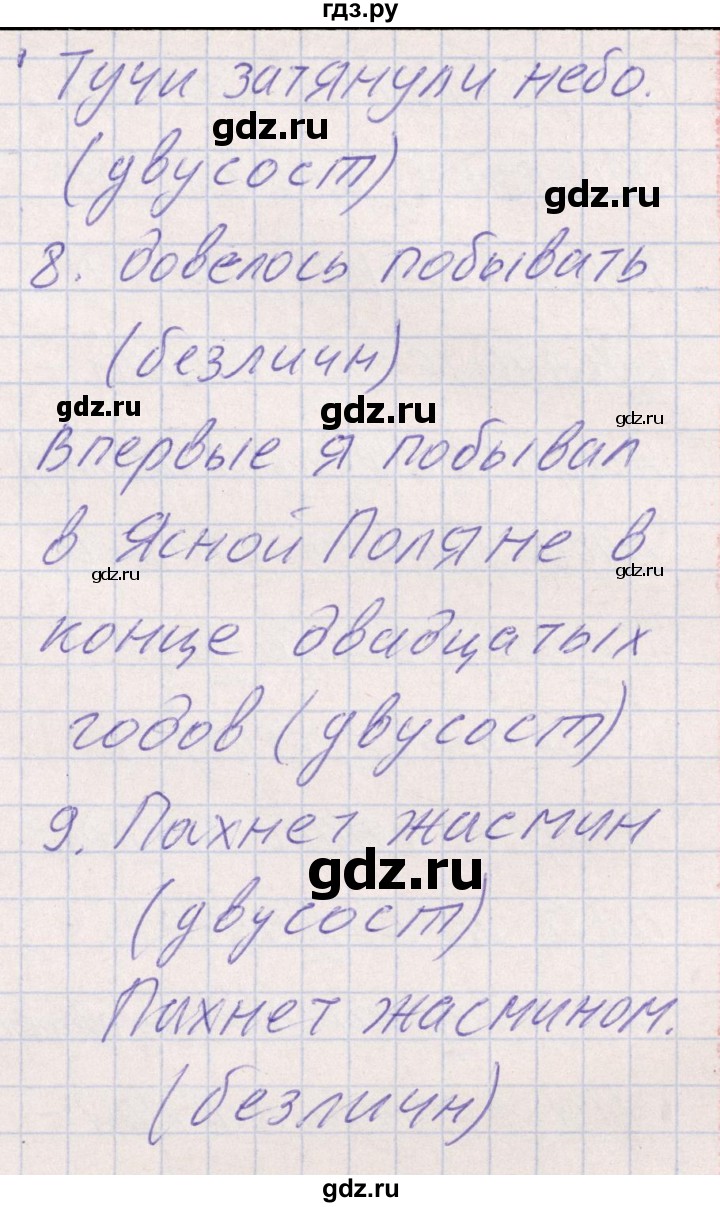 гдз.ру
Тучи затянули небо.
gdz.ru
(двусост)
gdz.ru
8. довелось побывать
(безличн)
gdz.ru gdz.ru gdz.ru
Впервые я побывал
в Ясной Поляне в
gdz.ru gdz.ru
конце двадцатых
годов (двусост)
9. Пахнет жасмин
gdz.ru
(двусост)
Пахнет жасмином.
(безличн)
gdz.ru